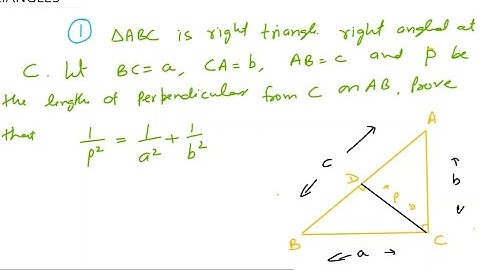 ① △ABC is right triangle. right angled at
C. Let BC = a, CA = b, AB = c and p be
the length of Perpendicular from C on AB, Prove
that 1/p² = 1/a² + 1/b²
A
c
D
p
b
B
a
C